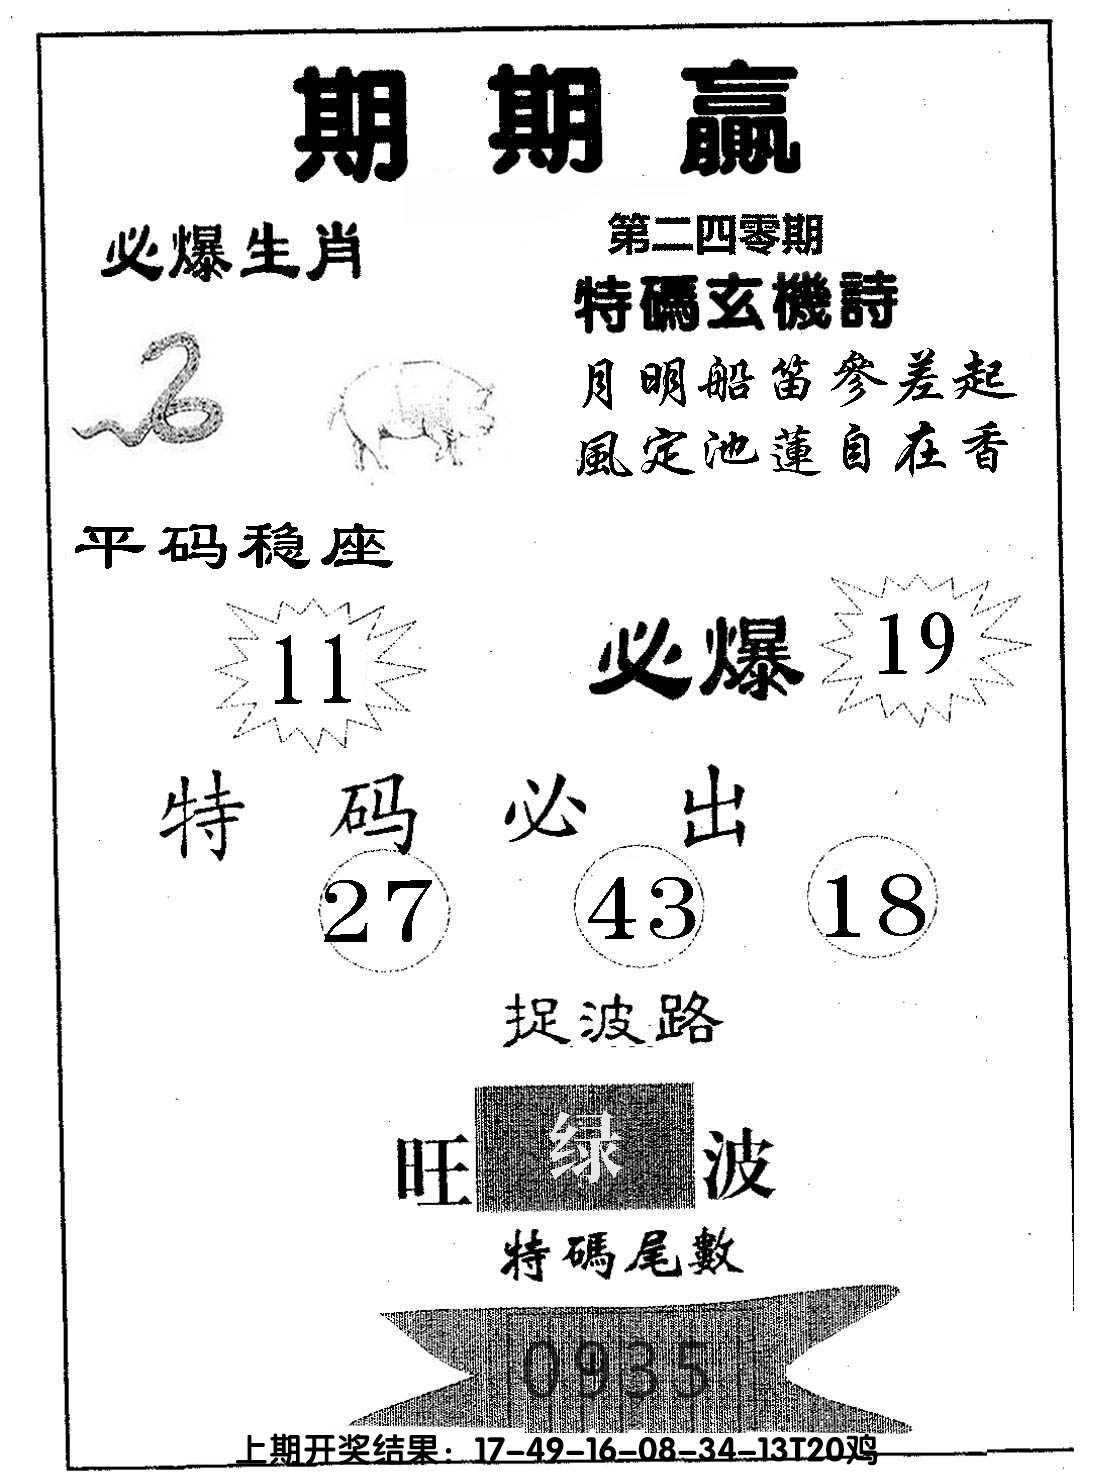 期期赢
必爆生肖
第二四零期
特碼玄機詩
月明船笛參差起
風定池蓮自在香
平码稳座
11
必爆 19
特码必出
27 43 18
捉波路
旺 绿 波
特碼尾數
0935
上期开奖结果：17-49-16-08-34-13T20鸡